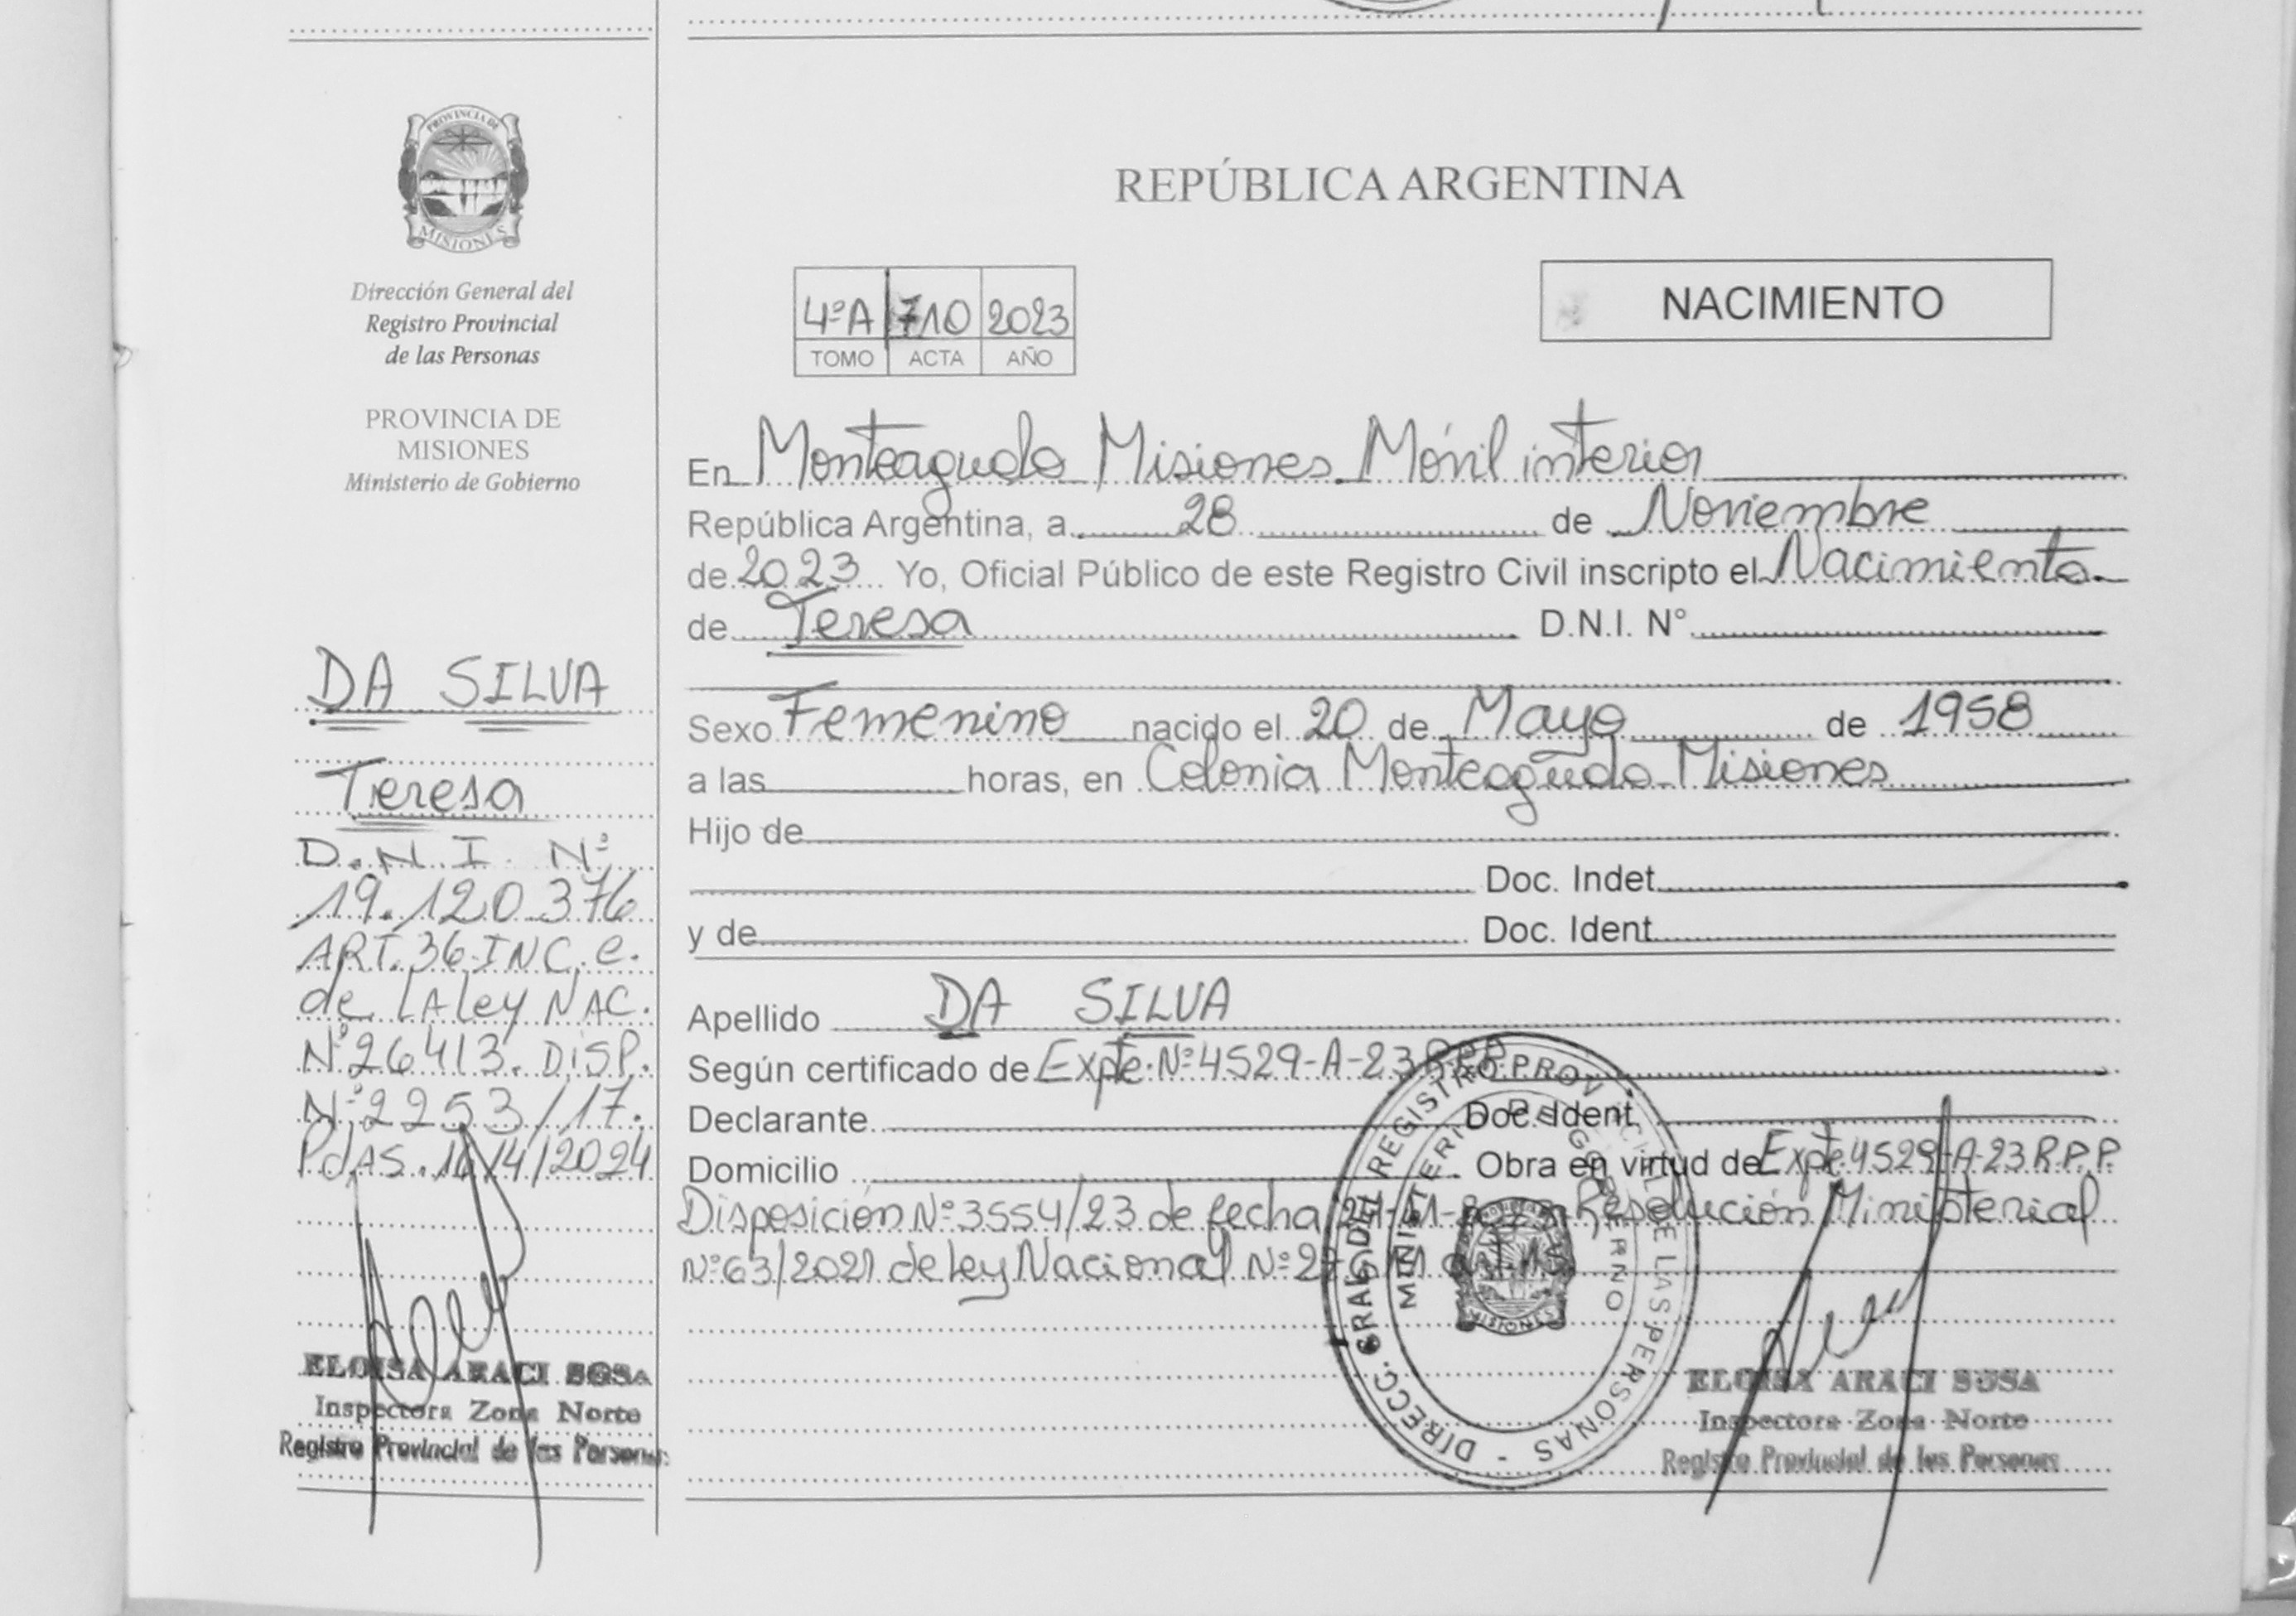 PROVINCIA DE
MISIONES
Dirección General del
Registro Provincial
de las Personas
PROVINCIA DE
MISIONES
Ministerio de Gobierno
DA SILVA
Teresa
D.N.I. Nº
19.120.376
ART. 36 INC. e.
de LA ley NAC.
Nº 26413. DISP.
Nº 2253/17.
PdAS. 16/4/2024
ELOISA ARACI SOSA
Inspectora Zona Norte
Registro Provincial de las Personas
REPÚBLICA ARGENTINA
4ºA 710 2023
TOMO ACTA AÑO
NACIMIENTO
En Monteagudo Misiones Móvil interior
República Argentina, a 28 de Noviembre
de 2023 Yo, Oficial Público de este Registro Civil inscripto el Nacimiento
de Teresa D.N.I. Nº
Sexo Femenino nacido el 20 de Mayo de 1958
a las horas, en Colonia Monteagudo Misiones
Hijo de
Doc. Indet
y de Doc. Ident
Apellido DA SILVA
Según certificado de Expte. Nº 4529-A-23 R.P.P
Declarante Doc. Ident
Domicilio Obra en virtud de Expte 4529-A-23 R.P.P
Disposición Nº 3554/23 de fecha Resolución Ministerial
Nº 63/2021 de ley Nacional Nº
DIRECC. GRAL. DEL REGISTRO PROVINCIAL DE LAS PERSONAS -
MINISTERIO DE GOBIERNO
MISIONES
ELOISA ARACI SOSA
Inspectora Zona Norte
Registro Provincial de las Personas